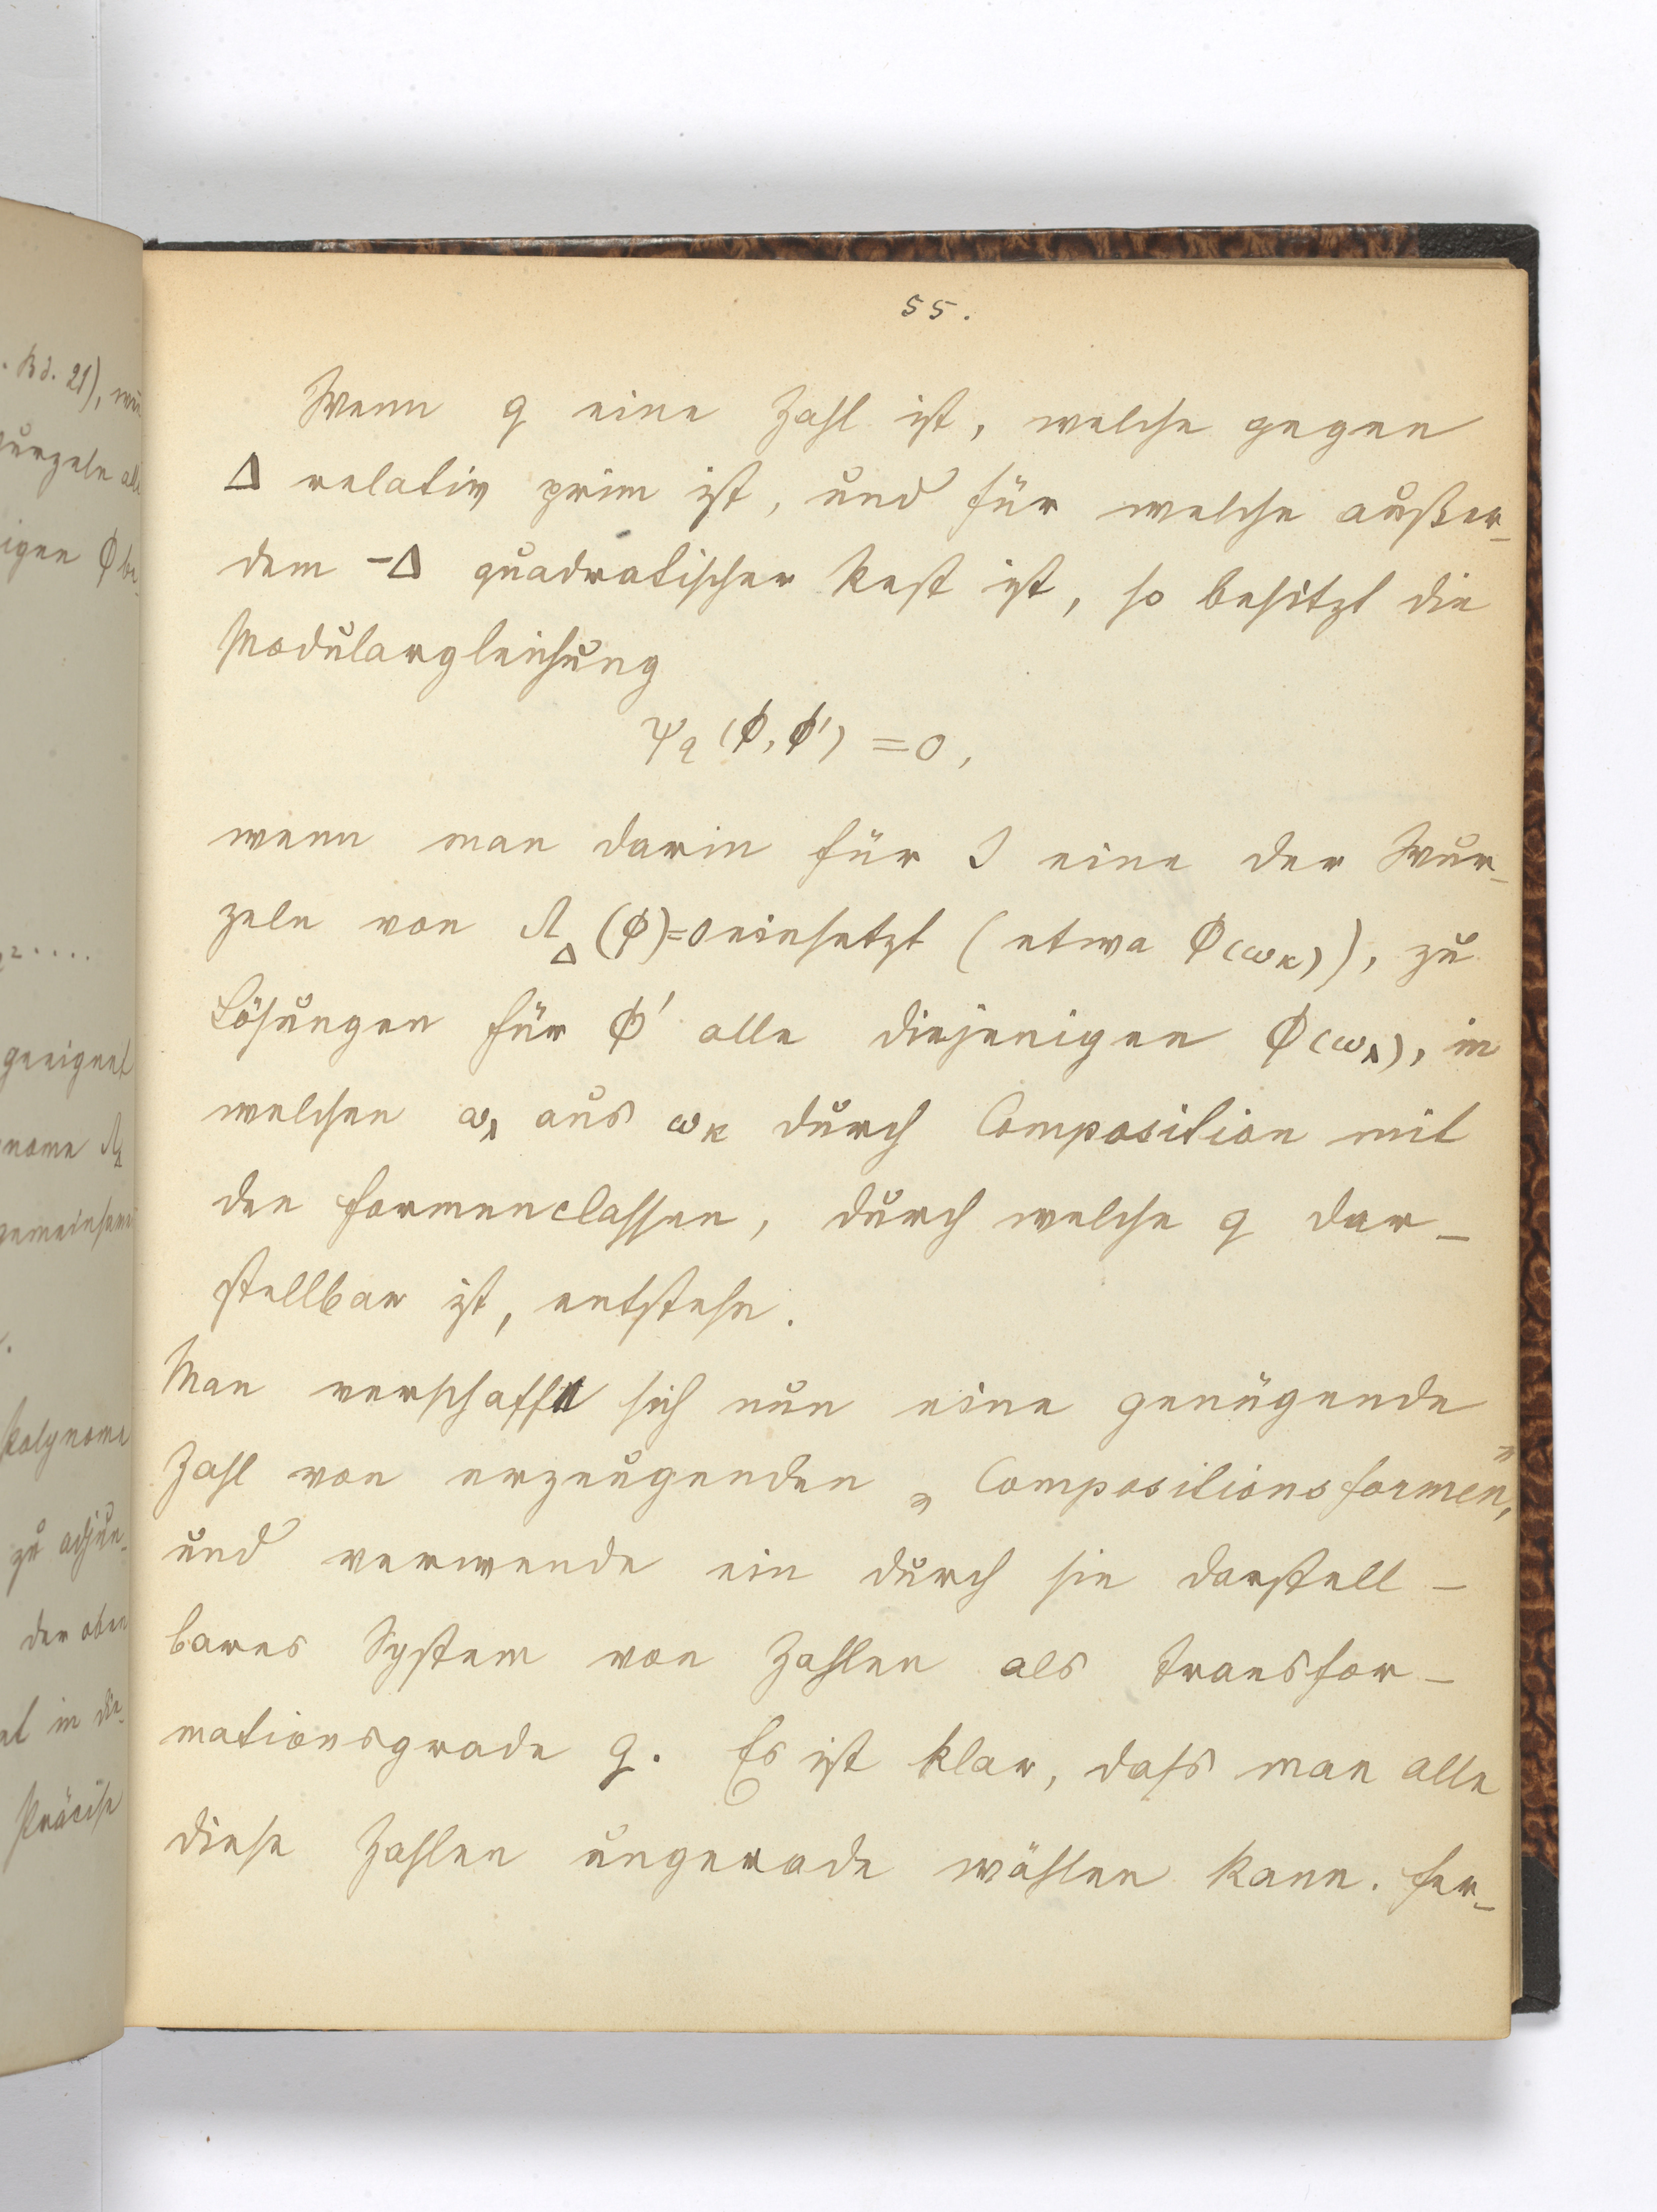 55.
Wenn q eine Zahl ist, welche gegen
Δ relativ prim ist, und für welche außer-
dem -Δ quadratischer Rest ist, so besitzt die
Modulargleichung
Ψq (ϕ, ϕ') = 0,
wenn man darin für J eine der Wur-
zeln von Λ_Δ (ϕ)=0 einsetzt (etwa ϕ(ωκ)), zu
Lösungen für ϕ' alle diejenigen ϕ(ωλ), in
welchen ωλ aus ωκ durch Composition mit
den Formenclassen, durch welche q dar-
stellbar ist, entstehn.
Man verschaffe sich nun eine genügende
Zahl von erzeugenden „Compositionsformen",
und verwende ein durch sie darstell-
bares System von Zahlen als Transfor-
mationsgrade q. Es ist klar, dass man alle
diese Zahlen ungerade wählen kann. Fer-
. Bd. 21),
igen ϕ be-
geeignet
gemeinsame
Polynome
zu adjun-
der oben
Präcise